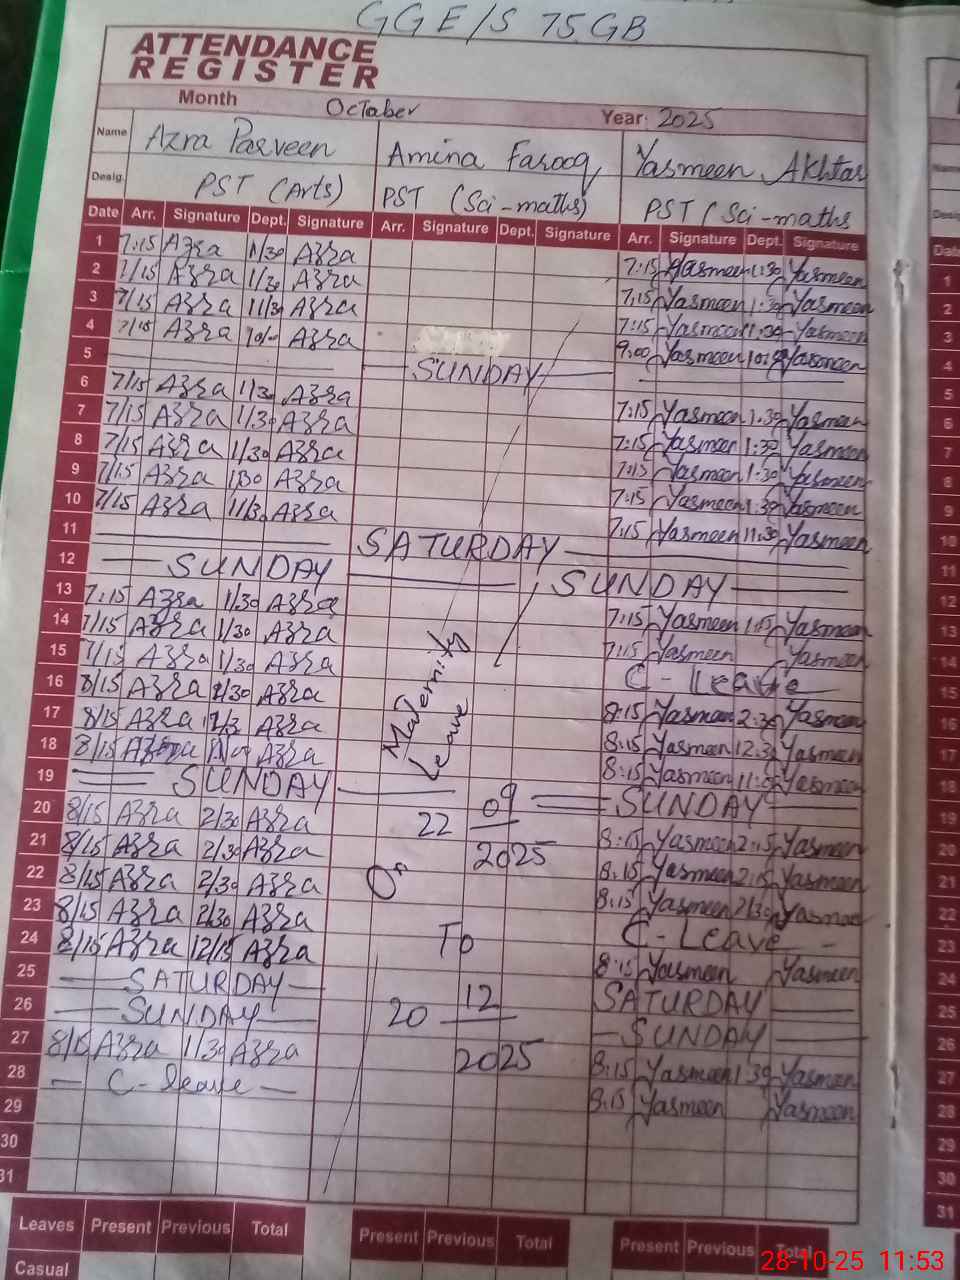 GGE/S 75 GB
ATTENDANCE
REGISTER
Month October Year 2025
Name Azra Parveen Amina Farooq Yasmeen Akhtar
Desig. PST (Arts) PST (Sci-maths) PST (Sci-maths
Date Arr. Signature Dept. Signature Arr. Signature Dept. Signature Arr. Signature Dept. Signature
1 7:15 Azra 1/30 Azra 7:15 Yasmeen 1:30 Yasmeen
2 7/15 Azra 1/30 Azra 7:15 Yasmeen 1:30 Yasmeen
3 7/15 Azra 11/30 Azra 7:15 Yasmeen 11:30 Yasmeen
4 7/15 Azra Azra 9:00 Yasmeen Yasmeen
5 SUNDAY
6 7/15 Azra 1/30 Azra 7:15 Yasmeen 1:30 Yasmeen
7 7/15 Azra 1/30 Azra 7:15 Yasmeen 1:30 Yasmeen
8 7/15 Azra 1/30 Azra 7:15 Yasmeen 1:30 Yasmeen
9 7/15 Azra 1:30 Azra 7:15 Yasmeen 1:30 Yasmeen
10 7/15 Azra 11/30 Azra 7:15 Yasmeen 11:30 Yasmeen
11 SATURDAY
12 SUNDAY SUNDAY
13 7:15 Azra 1/30 Azra 7:15 Yasmeen 1:15 Yasmeen
14 7/15 Azra 1/30 Azra 7:15 Yasmeen Yasmeen
15 7/15 Azra 1/30 Azra C-Leave
16 8/15 Azra 2/30 Azra 8:15 Yasmeen 2:30 Yasmeen
17 8/15 Azra Azra 8:15 Yasmeen 12:30 Yasmeen
18 8/15 Azra Azra 8:15 Yasmeen Yasmeen
Maternity
Leave
19 SUNDAY SUNDAY
20 8/15 Azra 2/30 Azra 8:15 Yasmeen 2:15 Yasmeen
21 8/15 Azra 2/30 Azra 8:15 Yasmeen 2:15 Yasmeen
22 8/15 Azra 2/30 Azra 8:15 Yasmeen 2/30 Yasmeen
23 8/15 Azra 2/30 Azra C-Leave
24 8/15 Azra 12/15 Azra 8:15 Yasmeen Yasmeen
On
22 09
2025
To
20 12
2025
25 SATURDAY SATURDAY
26 SUNDAY SUNDAY
27 8/15 Azra 1/30 Azra 8:15 Yasmeen 1:30 Yasmeen
28 C-leave 8:15 Yasmeen Yasmeen
29
30
31
Leaves Present Previous Total Present Previous Total Present Previous Total
Casual
28-10-25 11:53